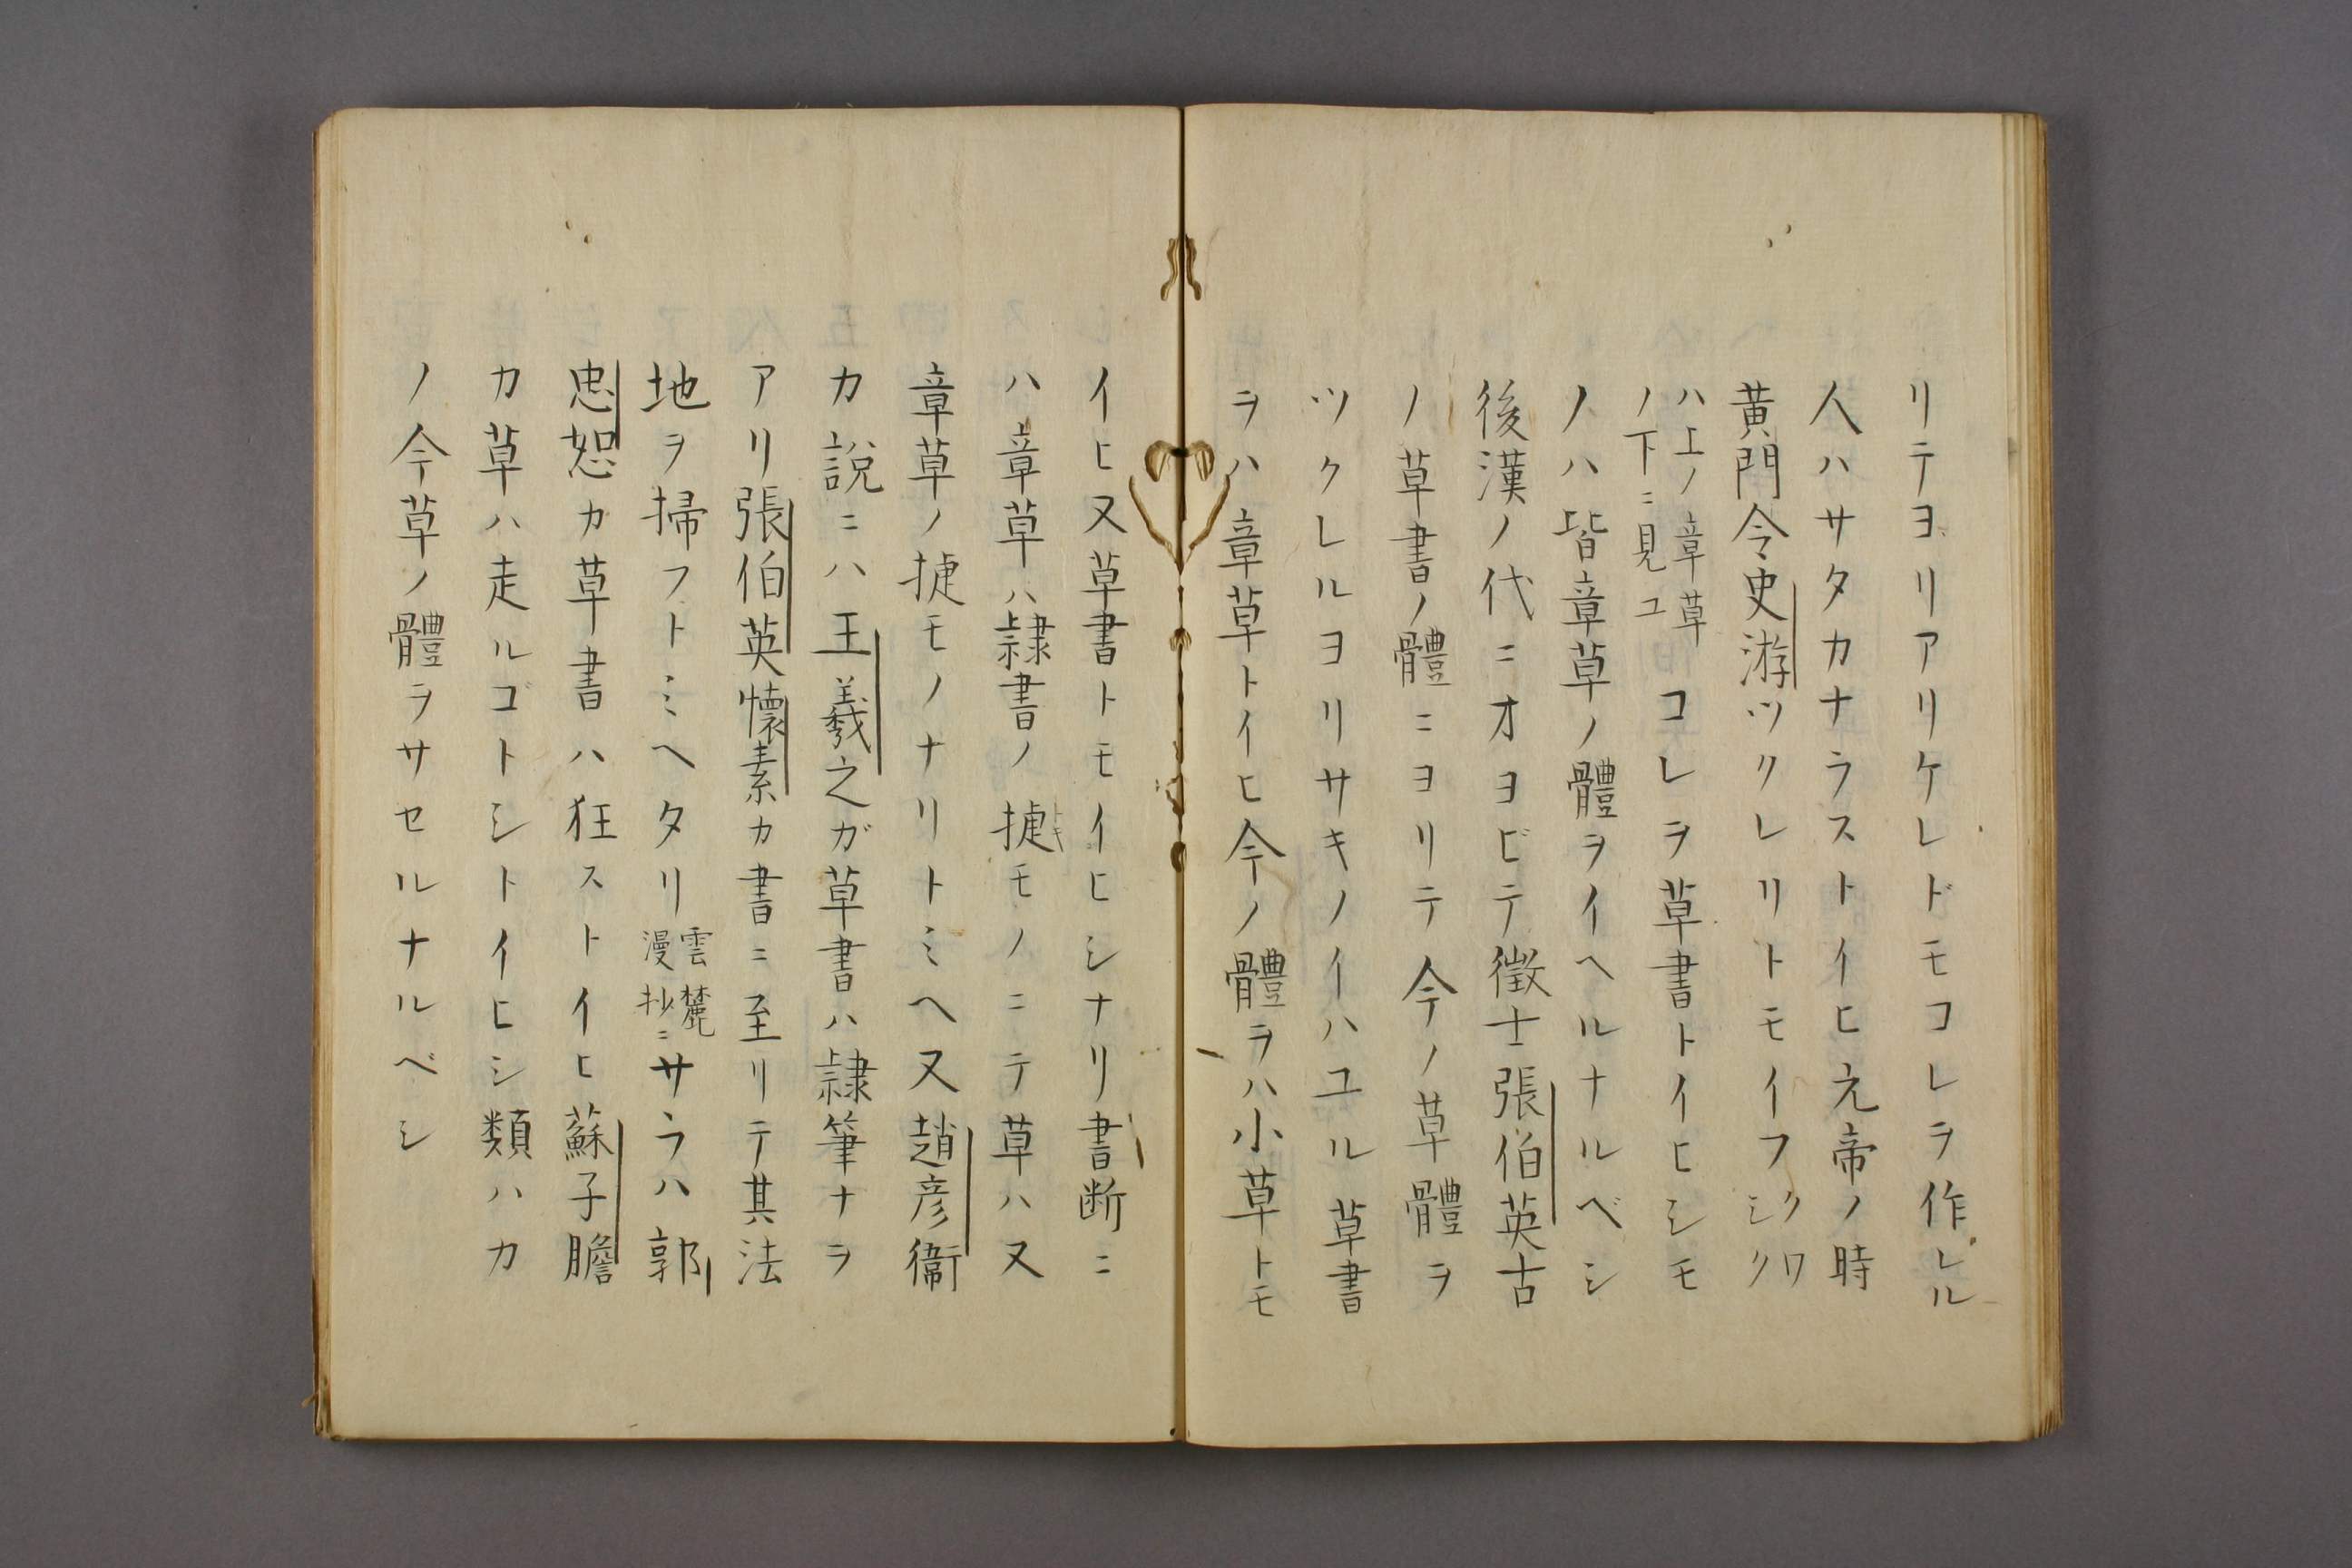 リテヨリアリケレドモコレヲ作レル
人ハサタカナラストイヒ元帝ノ時
黄門令史游ツクレリトモイフクワシク
ハ上ノ章草ノ下ニ見ユコレヲ草書トイヒシモ
ノハ皆章草ノ體ヲイヘルナルベシ
後漢ノ代ニオヨビテ徴士張伯英古
ノ草書ノ體ニヨリテ今ノ草體ヲ
ツクレルヨリサキノイハユル草書
ヲハ章草トイヒ今ノ體ヲハ小草トモ
イヒ又草書トモイヒシナリ書断ニ
ハ章草ハ隷書ノ捷トキモノニテ草ハ又
章草ノ捷モノナリトミヘ又趙彦衞
カ説ニハ王羲之ガ草書ハ隷筆ナヲ
アリ張伯英懐素カ書ニ至リテ其法
地ヲ掃フトミヘタリ雲麓漫抄ニサラハ郭
忠恕カ草書ハ狂ストイヒ蘇子膽
カ草ハ走ルゴトシトイヒシ類ハカ
ノ今草ノ體ヲサセルナルベシ